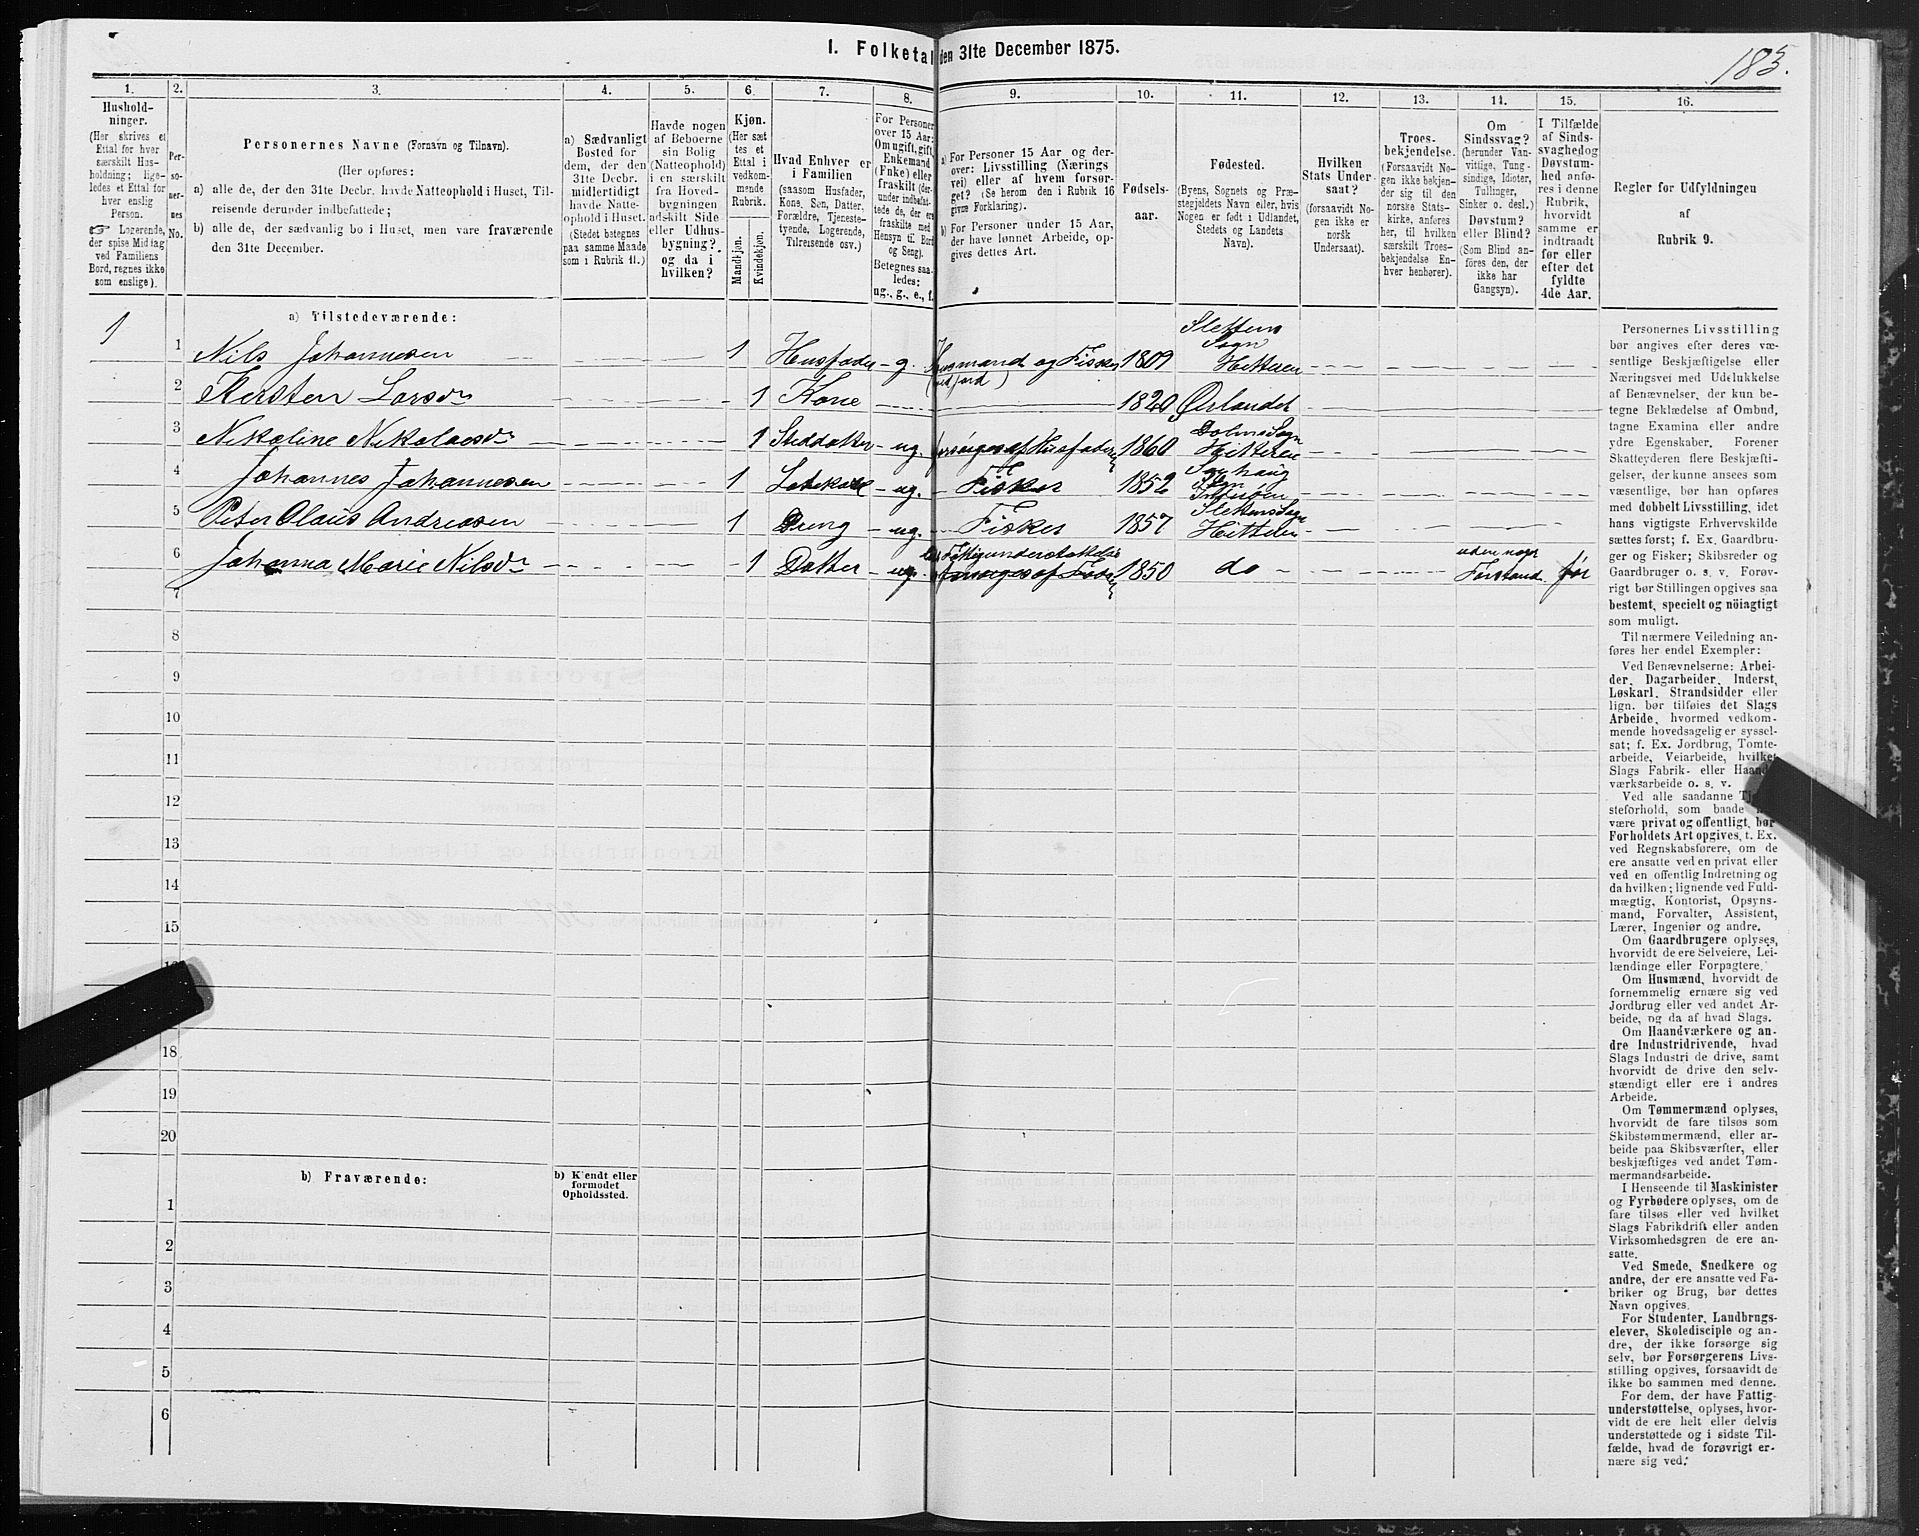 I. Folketal den 31te December 1875.
185.
1.
2.
3.
4.
5.
6.
7.
8.
9.
10.
11.
12.
13.
14.
15.
16.
Hushold-
ninger.
(Her skrives et
Ettal for hver
særskilt Hus-
holdning; lige-
ledes et Ettal for
hver enslig
Person.
Logerende,
der spise Middag
ved Familiens
Bord, regnes ikke
som enslige).
Per-
so-
ner-
nes
No.
Personernes Navne (Fornavn og Tilnavn).
(Her opføres:
a) alle de, der den 31te Decbr. havde Natteophold i Huset, Til-
reisende derunder indbefattede;
b) alle de, der sædvanlig bo i Huset, men vare fraværende
den 31te December.
a) Sædvanligt
Bosted for
dem, der den
31te Decbr.
midlertidigt
havde Natte-
ophold i Huset.
(Stedet betegnes
paa samme Maade
som i Rubrik 11.)
Havde nogen
af Beboerne
sin Bolig
(Natteophold)
i en særskilt
fra Hoved-
bygningen
adskilt Side-
eller Udhus-
bygning?
og da i
hvilken?
Kjøn.
(Her sæt
tes et
Ettal i
vedkom-
mende
Rubrik.
Mandkjøn.
Kvindekjøn.
Hvad Enhver er
i Familien
(saasom Husfader,
Kone, Søn, Datter,
Forældre, Tjeneste-
tyende, Logerende,
Tilreisende osv.)
For Personer
over 15 Aar:
Om ugift, gift,
Enkemand
(Enke) eller
fraskilt (der-
under indbefat-
tede de, der ere
fraskilte med
Hensyn til Bord
og Seng).
Betegnes saa-
ledes:
ug., g., e., f.
a) For Personer 15 Aar og der-
over: Livsstilling (Nærings-
vei) eller af hvem forsør-
get? (Se herom den i Rubrik 16
givne Forklaring).
b) For Personer under 15 Aar,
der have lønnet Arbeide, op-
gives dettes Art.
Fødsels-
aar.
Fødested.
(Byens, Sognets og Præ-
stegjeldets Navn eller, hvis
Nogen er født i Udlandet,
Stedets og Landets
Navn).
Hvilken
Stats Under-
saat?
(forsaavidt No-
gen ikke er
norsk
Undersaat).
Troes-
bekjendelse.
(Forsaavidt No-
gen ikke bekjen-
der sig til den
norske Stats-
kirke, anføres
her, til hvilken
særskilt Troes-
bekjendelse En-
hver henhører).
Om
Sindssvag?
(herunder Van-
vittige, Tung-
sindige, Idioter,
Tullinger,
Sinker o. desl.)
Døvstum?
eller Blind?
(Som Blind an-
føres den, der
ikke har
Gangsyn).
I Tilfælde
af Sinds-
svaghed og
Døvstum-
hed anfø-
res i denne
Rubrik,
hvorvidt
samme er
indtraadt
før eller
efter det
fyldte
4de Aar.
Regler for Udfyldningen
af
Rubrik 9.
a) Tilstedeværende:
1
1 Nils Johannesen 1 Husfader g. Husmand og Fisker 1809 Slettens Sogn Hitteren
2 Kersten Larsdr 1 Kone 1820 Ørlandet
3 Nikoline Nikolaesdr 1 Steddatter ug. forsørges af Husfaderen 1860 Dolms Sogn Hitteren
4 Johannes Johannesen 1 Losekarl ug. Fisker 1852 Sogn Inderøen
5 Peter Olaus Andreasen 1 Dreng ug. Fisker 1857 Slettens Sogn Hitteren
6 Johanna Marie Nilsdr 1 Datter ug. Fattigunderstøttelse forsørges af Faderen 1850 do uden noget Forstand før
7
8
9
10
11
12
13
14
15
18
19
20
b) Fraværende:
b) Kjendt eller
formodet
Opholdssted.
1
2
3
4
5
6
Personernes Livsstilling
bør angives efter deres væ-
sentlige Beskjæftigelse eller
Næringsvei med Udelukkelse
af Benævnelser, der kun be-
tegne Beklædelse af Ombud,
tagne Examina eller andre
ydre Egenskaber. Forener
Skatteyderen flere Beskjæfti-
gelser, der kunne ansees som
væsentlige, bør han opføres
med dobbelt Livsstilling, idet
hans vigtigste Erhvervskilde
sættes først; f. Ex. Gaardbru-
ger og Fisker; Skibsreder og
Gaardbruger o. s. v. Forøv-
rigt bør Stillingen opgives saa
bestemt, specielt og nöiagtigt
som muligt.
Til nærmere Veiledning an-
føres her endel Exempler:
Ved Benævnelserne: Arbei-
der, Dagarbeider, Inderst,
Løskarl, Strandsidder eller
lign. bør tilføies det Slags
Arbeide, hvormed vedkom-
mende hovedsagelig er syssel-
sat; f. Ex. Jordbrug, Tomte-
arbeide, Veiarbeide, hvilket
Slags Fabrik- eller Haand-
værksarbeide o. s. v.
Ved alle saadanne
steforhold, som baade
være privat og offentligt, bør
Forholdets Art opgives, t. Ex.
ved Regnskabsførere, om de
ere ansatte ved en privat eller
ved en offentlig Indretning og
da hvilken; lignende ved Fuld-
mægtig, Kontorist, Opsyns-
mand, Forvalter, Assistent,
Lærer, Ingeniør og andre.
Om Gaardbrugere oplyses,
hvorvidt de ere Selveiere, Lei-
lændinge eller Forpagtere.
Om Husmænd, hvorvidt de
fornemmelig ernære sig ved
Jordbrug eller ved andet Ar-
beide, og da af hvad Slags.
Om Haandværkere og an-
dre Industridrivende, hvad
Slags Industri de drive, samt
hvorvidt de drive den selv-
stændigt eller ere i andres
Arbeide.
Om Tømmermænd oplyses,
hvorvidt de fare tilsøs som
Skibstømmermænd, eller ar-
beide paa Skibsværfter, eller
beskjæftiges ved andet Tøm-
mermandsarbeide.
I Henseende til Maskinister
og Fyrbødere oplyses, om de
fare tilsøs eller ved hvilket
Slags Fabrikdrift eller anden
Virksomhedsgren de ere an-
satte.
Ved Smede, Snedkere og
andre, der ere ansatte ved Fa-
briker og Brug, bør dettes
Navn opgives.
For Studenter, Landbrugs-
elever, Skoledisciple og an-
dre, der ikke forsørge sig
selv, bør Forsørgerens Livs-
stilling opgives, forsaavidt de
ikke bo sammen med denne.
For dem, der have Fattig-
understøttelse, oplyses, hvor-
vidt de ere helt eller delvis
understøttede og i sidste Til-
fælde, hvad de forøvrigt er-
nære sig ved.